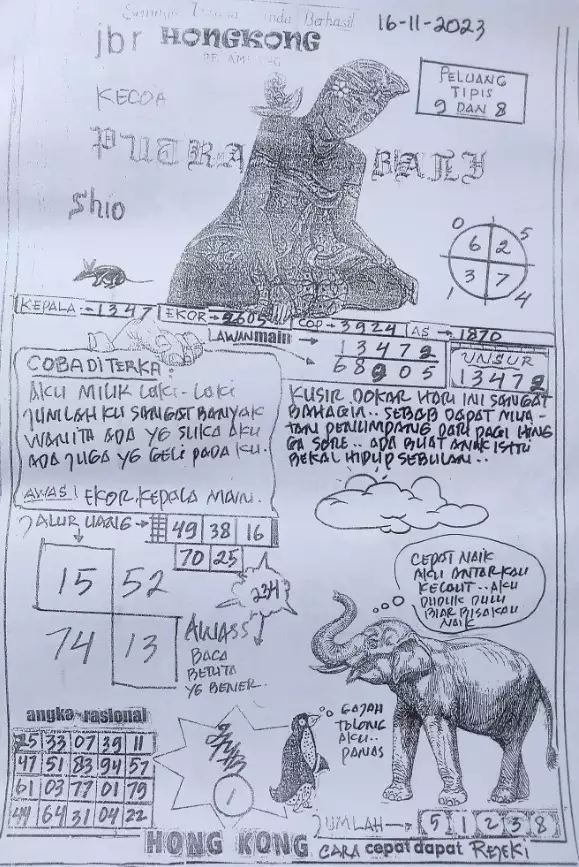 Semoga Anda Berhasil
16-11-2023
jbr HONGKONG
KECOA
PELUANG
TIPIS
9 DAN 8
PUTRA BALI
Shio
0 5
6 2
3 7
1 4
KEPALA → 1347
EKOR → 2605
COP → 3924
AS → 1870
LAWAN main →
13472
68905
UNSUR
13472
COBA DI TERKA:
AKU MILIK LAKI-LAKI
JUMLAH KU SANGAT BANYAK
WANITA ADA YG SUKA AKU
ADA JUGA YG GELI PADA KU.
AWAS! EKOR.KEPALA MAIN.
KUSIR DOKAR HARI INI SANGAT
BAHAGIA.. SEBAB DAPAT MUA-
TAN PENUMPANG DARI PAGI HING
GA SORE.. ADA BUAT ANAK ISTRI
BEKAL HIDUP SEBULAN..
JALUR UANG → 49 38 16
70 25
15 52
74 13
234
AWASS
BACA
BETUL2
YG BENER.
CEPAT NAIK
AKU ANTAR KAU
KELAUT.. AKU
DUDUK DULU
BIAR BISA KAU
NAIK
GAJAH
TOLONG
AKU..
PANAS
angka rasional
75 33 07 39 11
47 51 83 94 57
61 03 77 01 79
49 64 31 04 22
1
JUMLAH → 5 1 2 3 8
HONG KONG CARA cepat dapat REJEKI